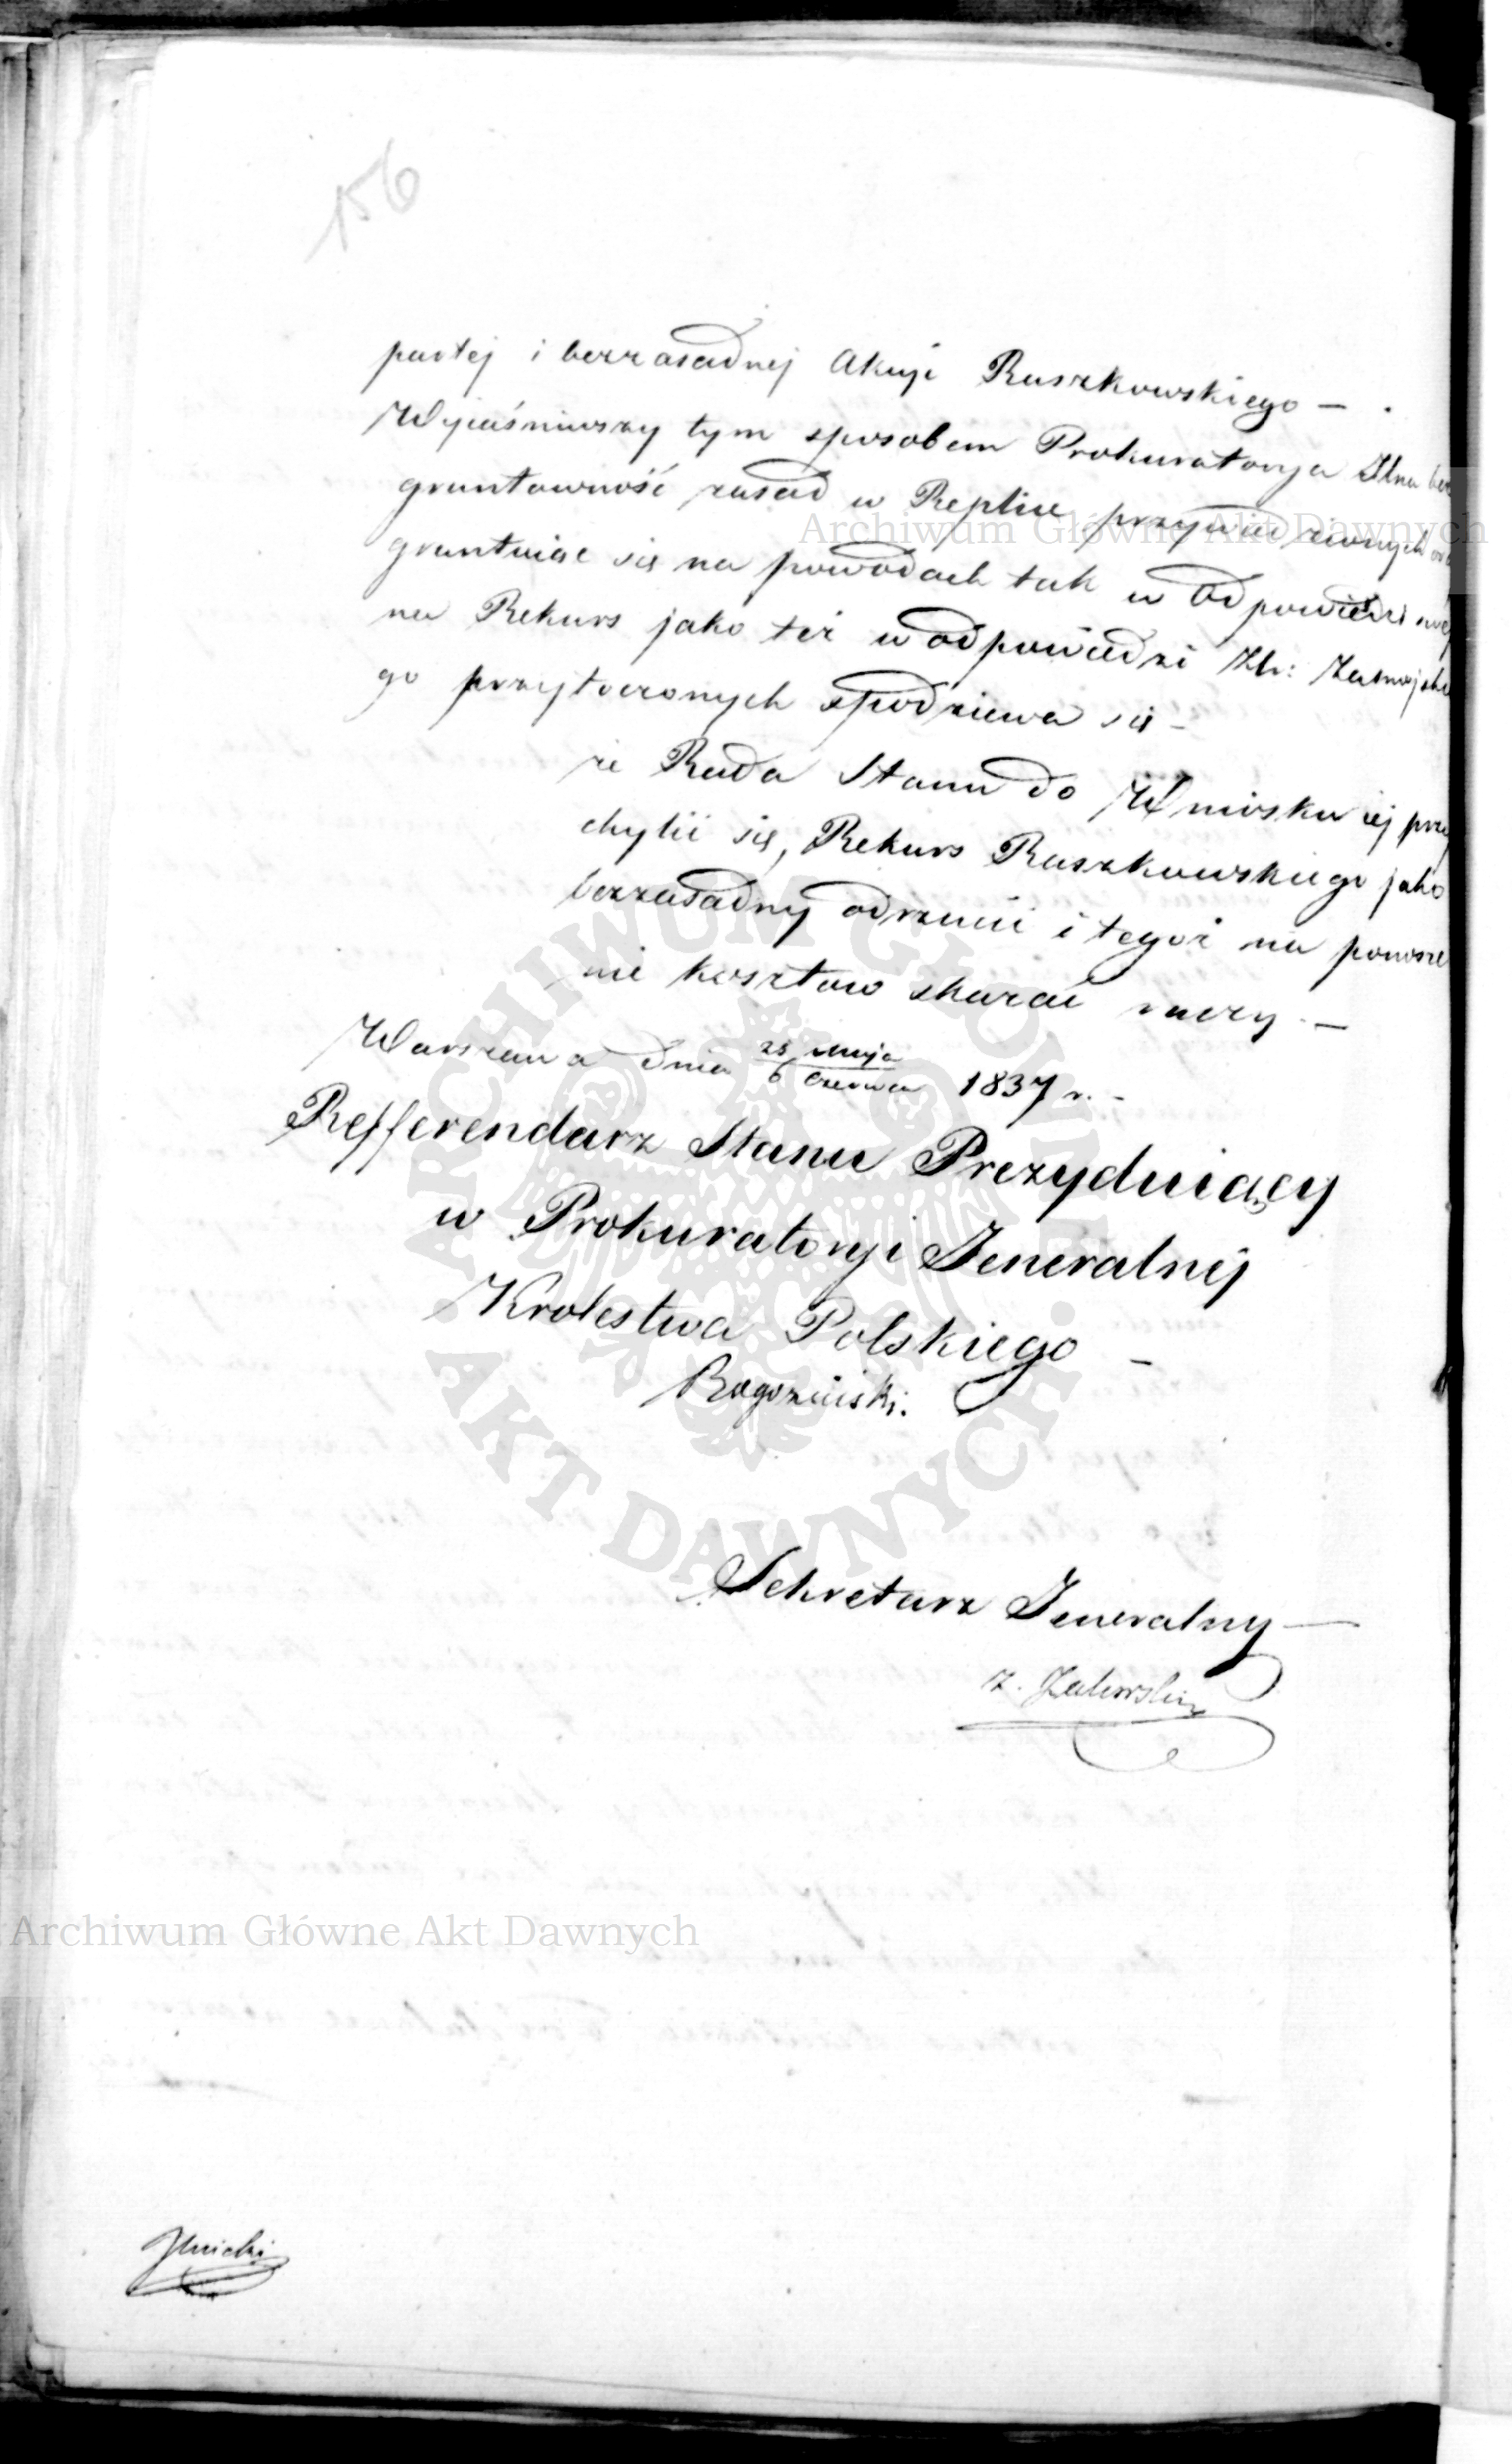 156
partej i bezzasadnej Akcyi Ruszkowskiego —
Wyjaśniwszy tym sposobem Prokuratorya Jlna bez
gruntowność zasad w Replice przywiedzionych
gruntuiąc się na powodach tak w Odpowiedzi swej
na Rekurs jako też w odpowiedzi Hr: Zamojskie
go przytoczonych spodziewa się —
że Rada Stanu do Wniosku iej przy
chylić się, Rekurs Ruszkowskiego jako
bezzasadny odrzucić i tegoż na ponosze
nie kosztow skazać raczy. —
Warszawa dnia 25 Maja / 6 Czerwca 1837 r. —
Refferendarz Stanu Prezyduiący
w Prokuratoryi Jeneralnej
Krolestwa Polskiego —
Rogoziński.
Sekretarz Jeneralny —
Z. Zalewski
Archiwum Główne Akt Dawnych
Archiwum Główne Akt Dawnych
ARCHIWUM GŁÓWNE AKT DAWNYCH